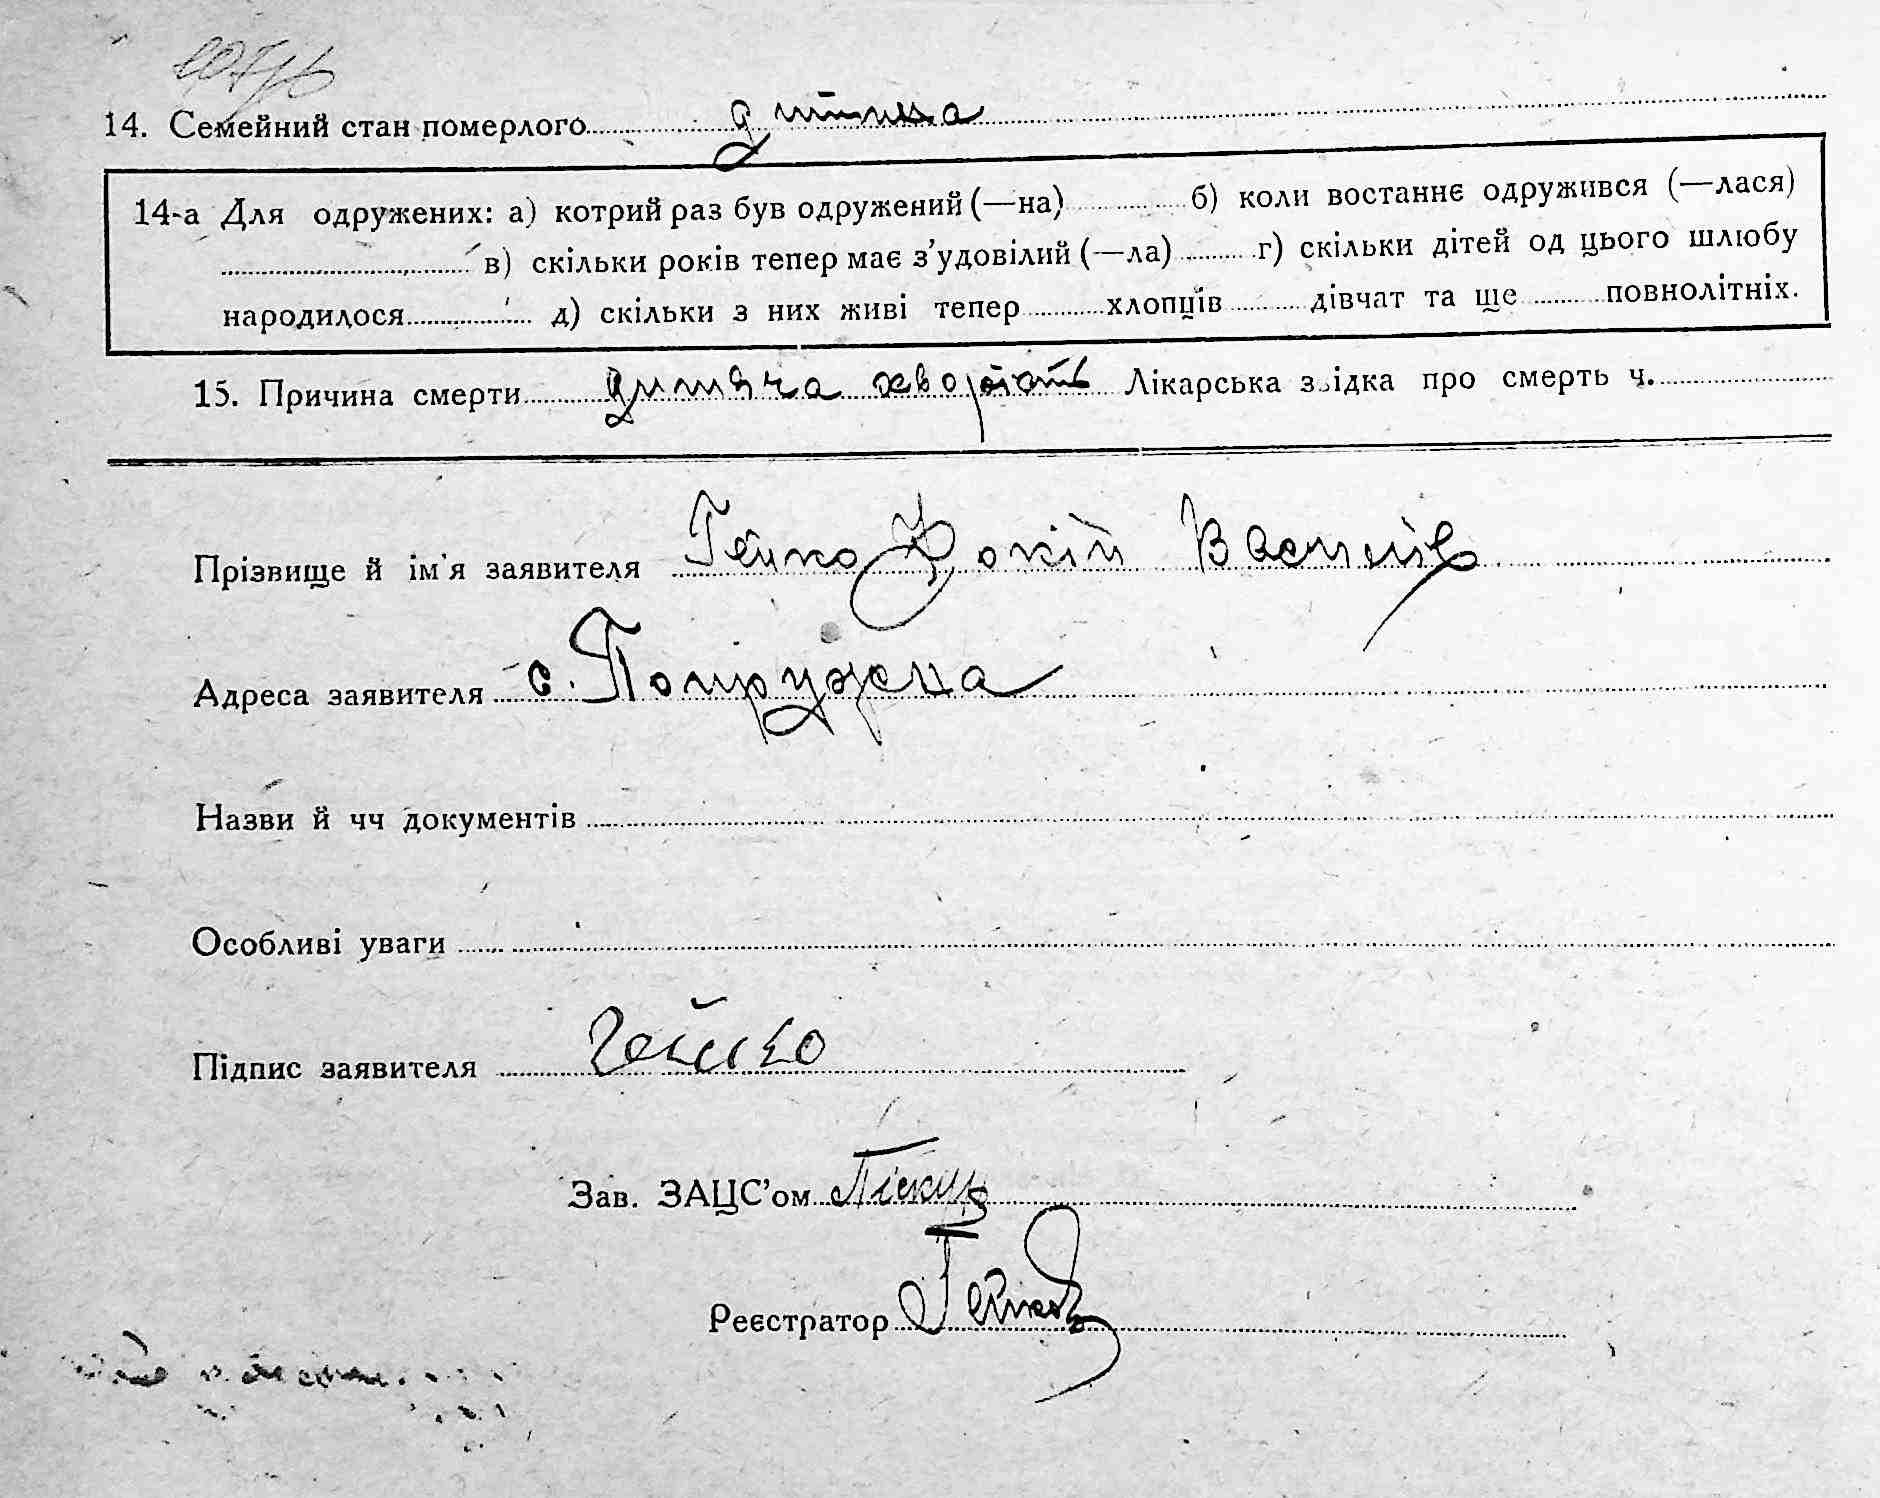 14. Семейний стан померлого дитина
14-а Для одружених: а) котрий раз був одружений (—на) б) коли востаннє одружився (—лася)
в) скільки років тепер має з’удовілий (—ла) г) скільки дітей од цього шлюбу
народилося д) скільки з них живі тепер хлопців дівчат та ще повнолітніх.
15. Причина смерти дитяча хворість Лікарська звідка про смерть ч.
Прізвище й ім’я заявителя Гейко Фокій Василів
Адреса заявителя с. Попружна
Назви й чч документів
Особливі уваги
Підпис заявителя Гейко
Зав. ЗАЦС’ом
Реєстратор